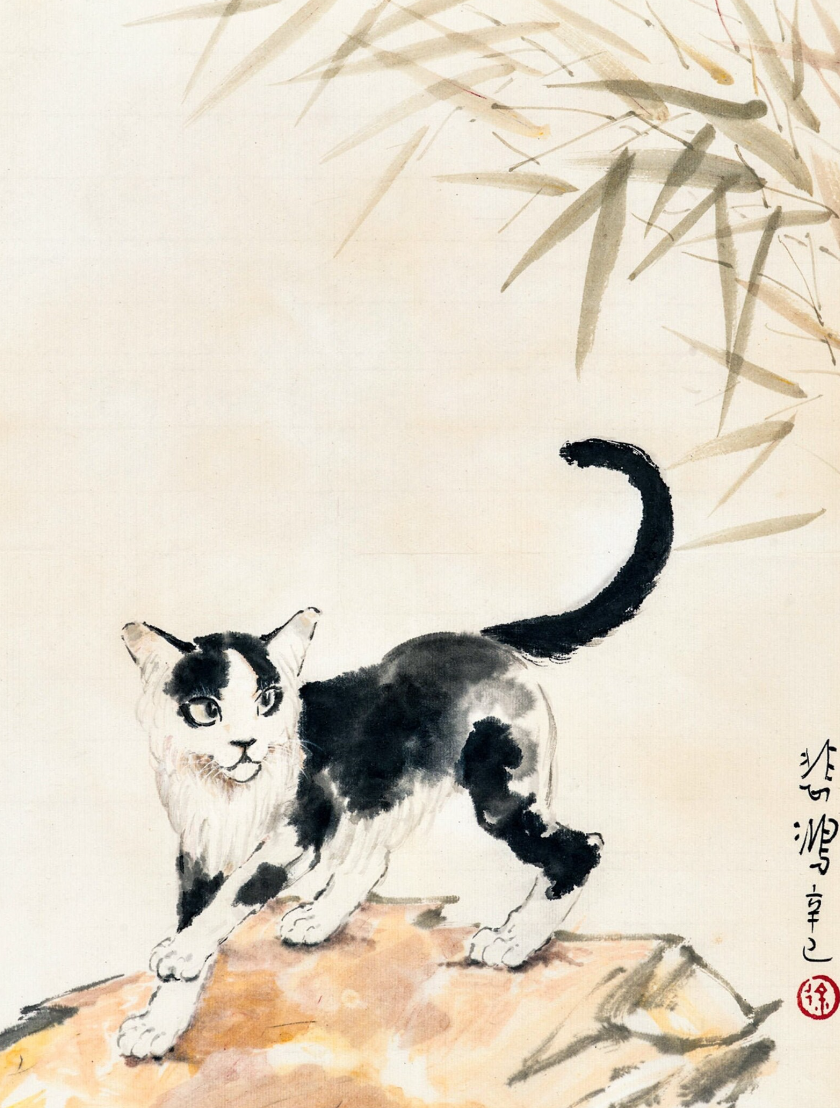 悲鴻辛巳
徐